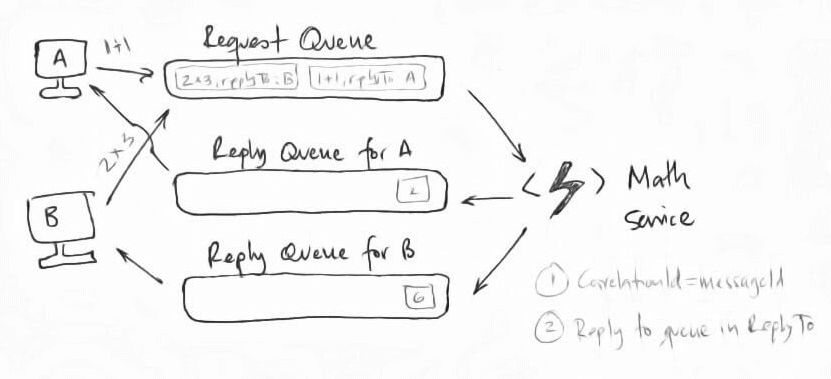 1+1
Request Queue
A
2×3, replyTo: B
1+1, replyTo A
2×3
Reply Queue for A
2
Math
Service
B
Reply Queue for B
6
① CorrelationId=messageId
② Reply to queue in ReplyTo